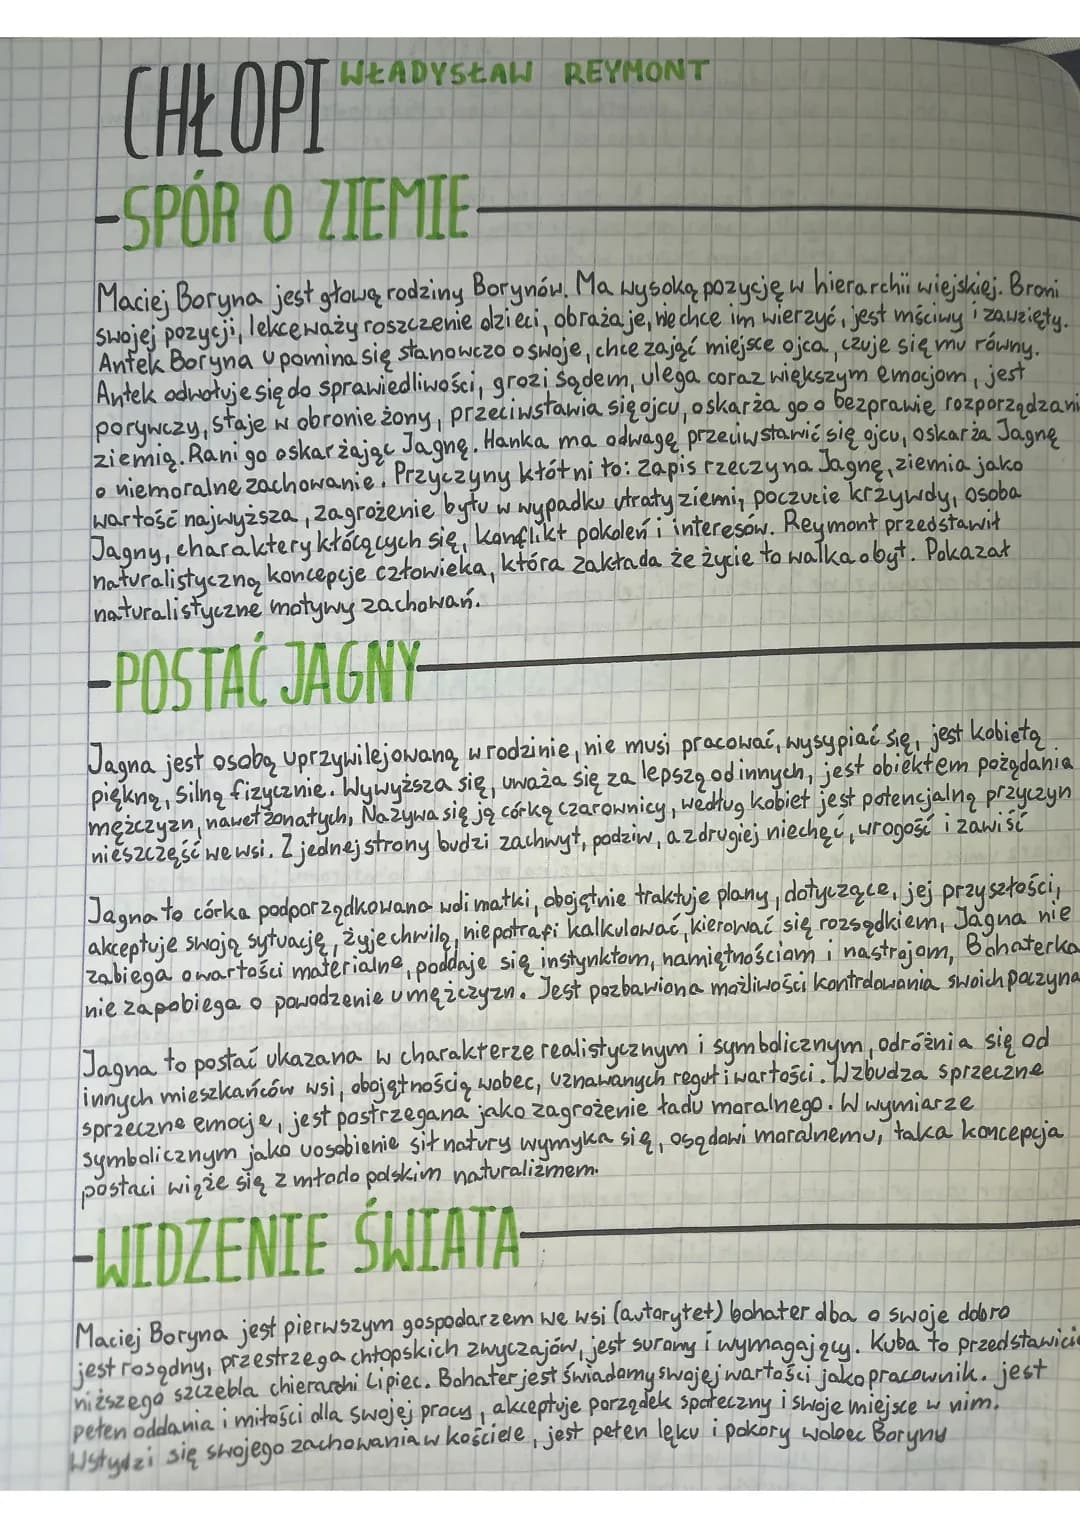 CHŁOPI WŁADYSŁAW REYMONT
-SPÓR O ZIEMIE
Maciej Boryna jest głową rodziny Borynów. Ma wysoką pozycję w hierarchii wiejskiej. Broni
swojej pozycji, lekceważy roszczenie dzieci, obraża je, nie chce im wierzyć, jest mściwy i zawzięty.
Antek Boryna upomina się stanowczo o swoje, chce zająć miejsce ojca, czuje się mu równy.
Antek odwołuje się do sprawiedliwości, grozi sądem, ulega coraz większym emocjom, jest
porywczy, staje w obronie żony, przeciwstawia się ojcu, oskarża go o bezprawie rozporządzani
ziemią. Rani go oskarżając Jagnę. Hanka ma odwagę przeciwstawić się ojcu, oskarża Jagnę
o niemoralne zachowanie. Przyczyny kłótni to: zapis rzeczy na Jagnę, ziemia jako
wartość najwyższa, zagrożenie bytu w wypadku utraty ziemi, poczucie krzywdy, osoba
Jagny, charaktery kłócących się, konflikt pokoleń i interesów. Reymont przedstawił
naturalistyczną koncepcje człowieka, która zakłada że życie to walka o byt. Pokazał
naturalistyczne motywy zachowań.
-POSTAĆ JAGNY
Jagna jest osobą uprzywilejowaną w rodzinie, nie musi pracować, wysypiać się, jest kobietą
piękną, silną fizycznie. Wywyższa się, uważa się za lepszą od innych, jest obiektem pożądania
mężczyzn, nawet żonatych, Nazywa się ją córką czarownicy, według kobiet jest potencjalną przyczyn
nieszczęść we wsi. Z jednej strony budzi zachwyt, podziw, a z drugiej niechęć, wrogość i zawiść
Jagna to córka podporządkowana wdi matki, obojętnie traktuje plany, dotyczące, jej przyszłości,
akceptuje swoją sytuację, żyje chwilą, nie potrafi kalkulować, kierować się rozsądkiem, Jagna nie
zabiega o wartości materialne, poddaje się instynktom, namiętnościom i nastrojom, Bohaterka
nie zapobiega o powodzenie u mężczyzn. Jest pozbawiona możliwości kontrdowania swoich poczyna
Jagna to postać ukazana w charakterze realistycznym i symbolicznym, odróżnia się od
innych mieszkańców wsi, obojętnością wobec, uznawanych reguł i wartości. Wzbudza sprzeczne
sprzeczne emocje, jest postrzegana jako zagrożenie ładu moralnego. W wymiarze
symbolicznym jako uosobienie sił natury wymyka się, osądowi moralnemu, taka koncepcja
postaci wiąże się z młodo polskim naturalizmem.
-WIDZENIE ŚWIATA
Maciej Boryna jest pierwszym gospodarzem we wsi (autorytet) bohater dba o swoje dobro
jest rosądny, przestrzega chłopskich zwyczajów, jest surowy i wymagający. Kuba to przedstawicie
niższego szczebla chierarchi Lipiec. Bohater jest świadomy swojej wartości jako pracownik. jest
pełen oddania i miłości dla swojej pracy, akceptuje porządek społeczny i swoje miejsce w nim.
Wstydzi się swojego zachowania w kościele, jest pełen lęku i pokory wobec Boryny